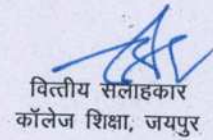 वित्तीय सलाहकार
कॉलेज शिक्षा, जयपुर